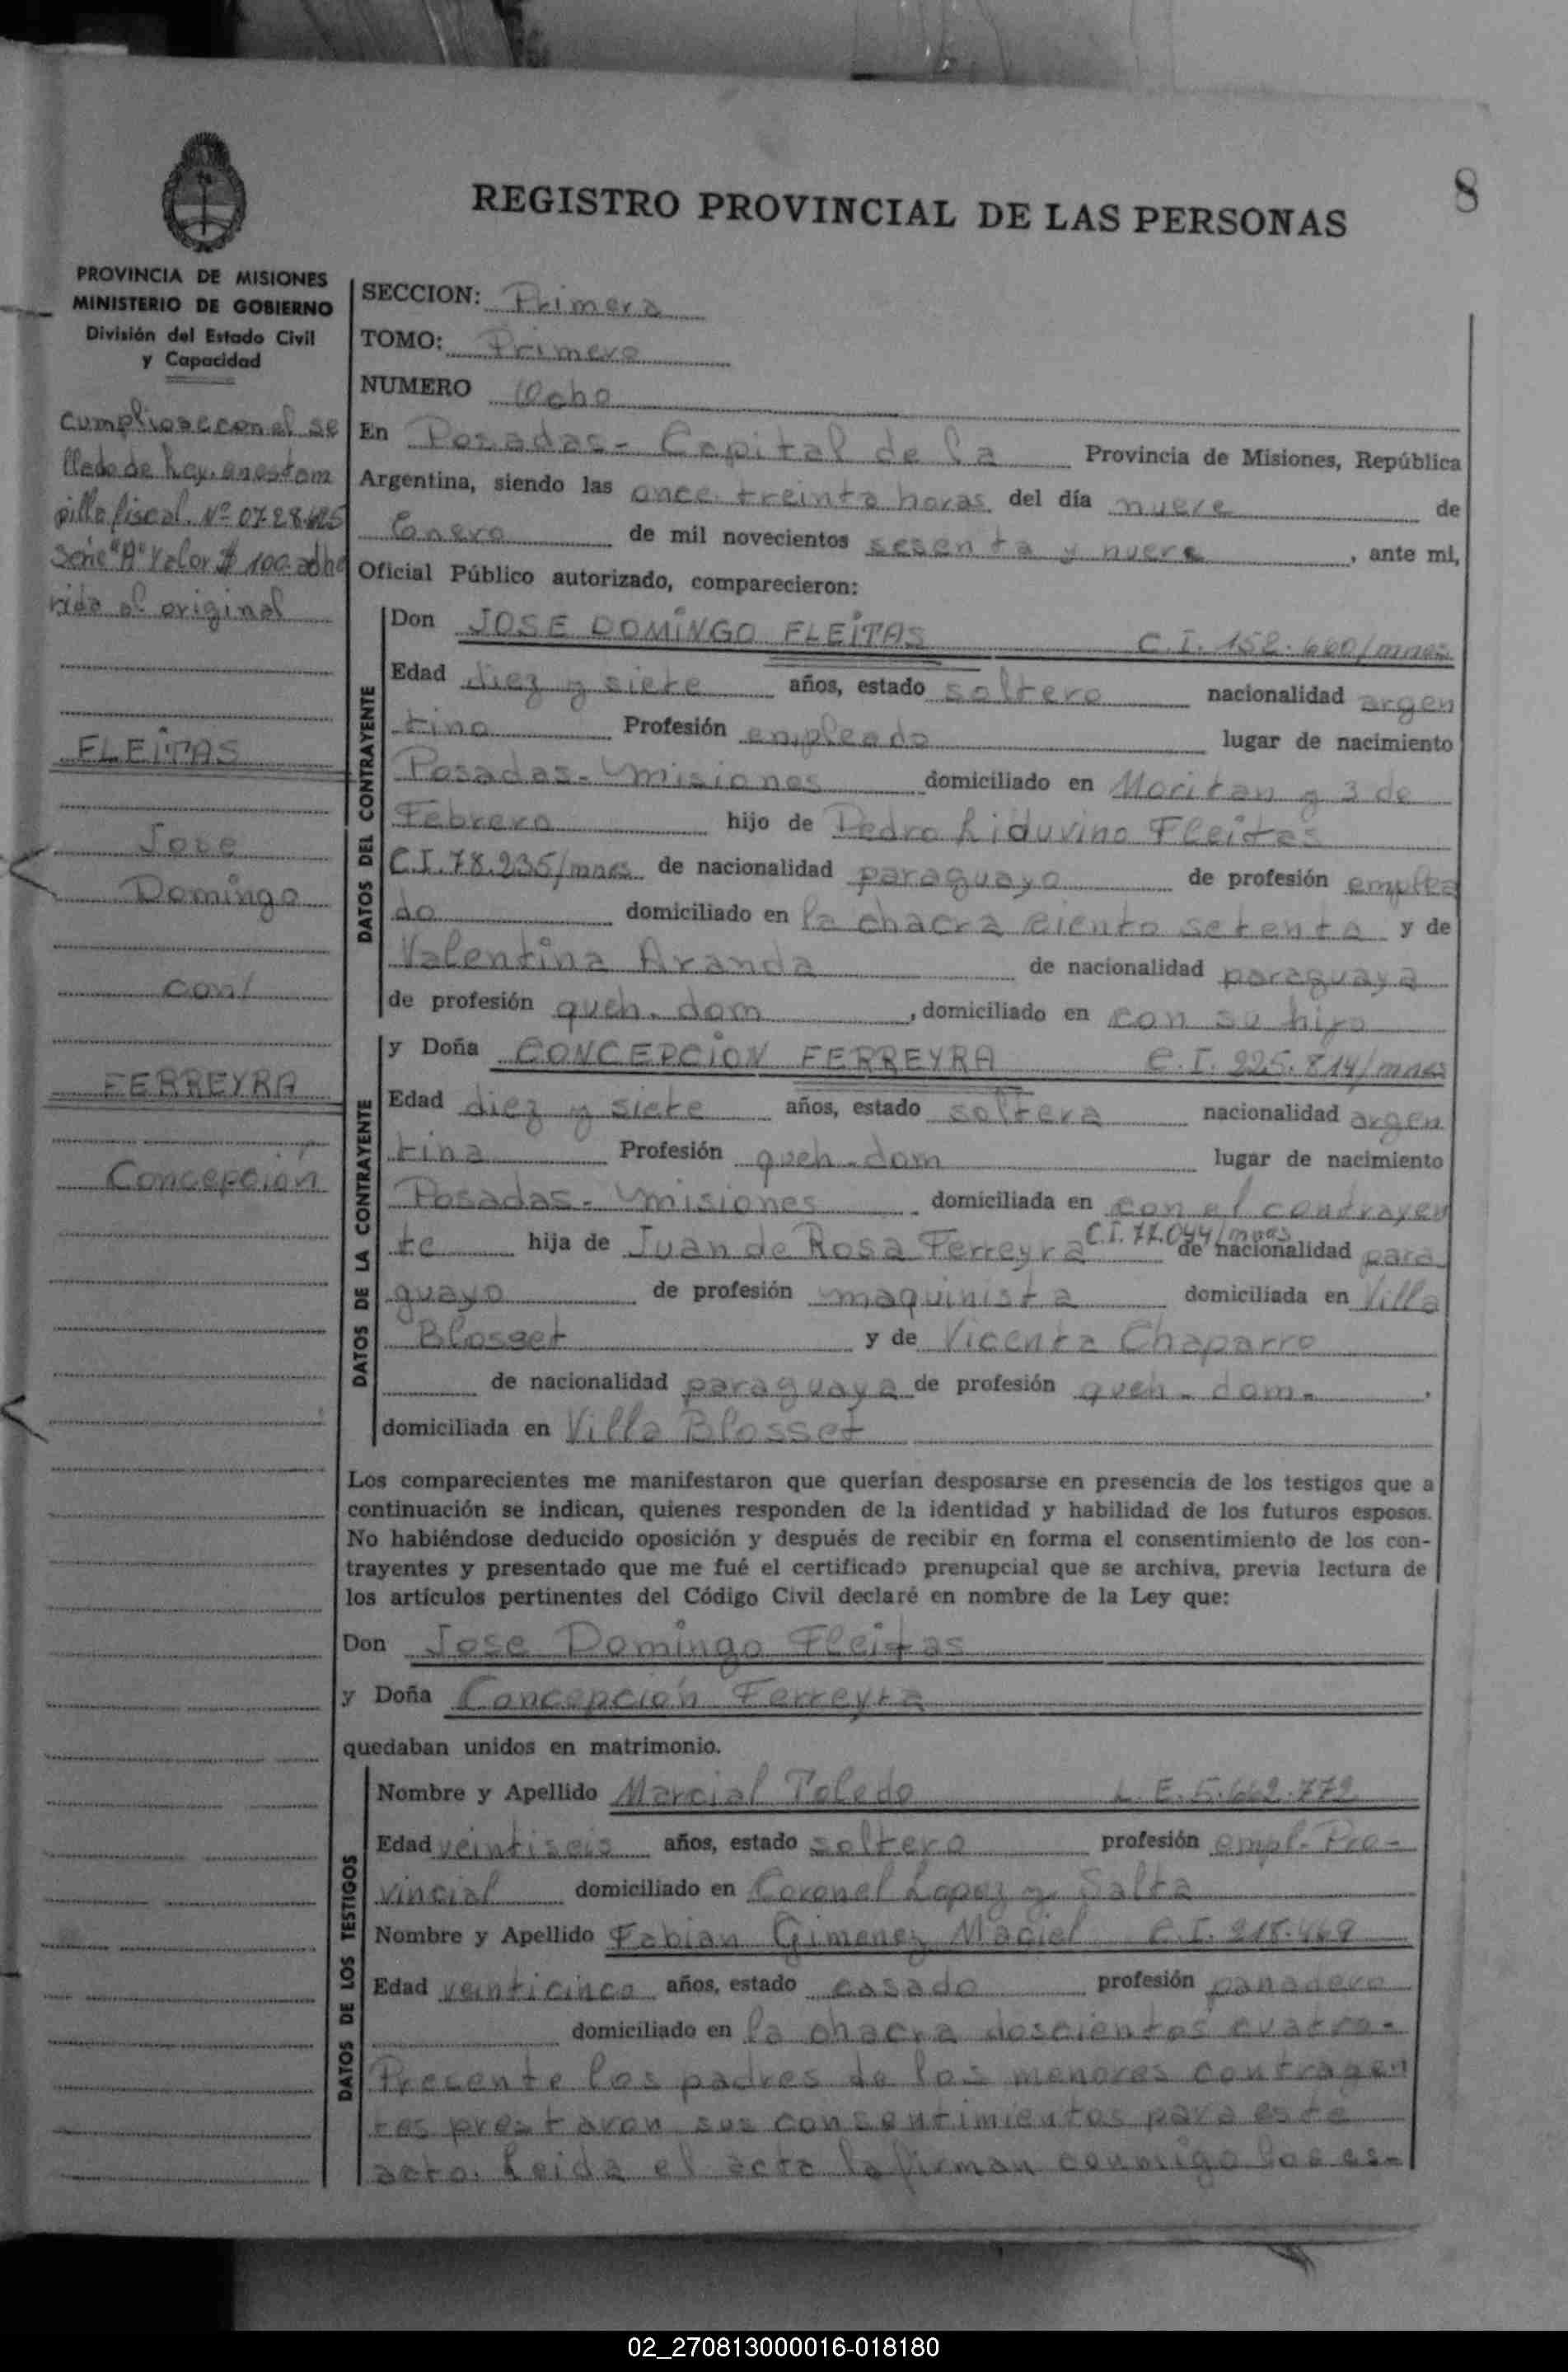 8
REGISTRO PROVINCIAL DE LAS PERSONAS
PROVINCIA DE MISIONES
MINISTERIO DE GOBIERNO
División del Estado Civil
y Capacidad
cumpliose con el se
llado de ley, en estam
pilla fiscal Nº
Serie "A" Valor $ 100 adhe
rida al original
FLEITAS
Jose
Domingo
con/
FERREYRA
Concepción
SECCION: Primera
TOMO: Primero
NUMERO Ocho
En Posadas - Capital de la Provincia de Misiones, República
Argentina, siendo las once treinta horas del día nueve de
Enero de mil novecientos sesenta y nueve, ante mí,
Oficial Público autorizado, comparecieron:
DATOS DEL CONTRAYENTE
Don JOSE DOMINGO FLEITAS C.I. 152.660/mnes
Edad diez y siete años, estado soltero nacionalidad argen
tino Profesión empleado lugar de nacimiento
Posadas - Misiones domiciliado en Moritan y 3 de
Febrero hijo de Pedro Liduvino Fleitas
C.I. 78.235/mnes de nacionalidad paraguayo de profesión emplea
do domiciliado en la chacra ciento setenta y de
Valentina Aranda de nacionalidad paraguaya
de profesión queh. dom , domiciliado en con su hijo
DATOS DE LA CONTRAYENTE
y Doña CONCEPCION FERREYRA C.I. 225.814/mnes
Edad diez y siete años, estado soltera nacionalidad argen
tina Profesión queh-dom lugar de nacimiento
Posadas - Misiones domiciliada en con el contrayen
te hija de Juan de Rosa Ferreyra C.I. 77.044/mnes de nacionalidad para
guayo de profesión maquinista domiciliada en Villa
Blosset y de Vicenta Chaparro
de nacionalidad paraguaya de profesión queh-dom-,
domiciliada en Villa Blosset
Los comparecientes me manifestaron que querían desposarse en presencia de los testigos que a
continuación se indican, quienes responden de la identidad y habilidad de los futuros esposos.
No habiéndose deducido oposición y después de recibir en forma el consentimiento de los con-
trayentes y presentado que me fué el certificado prenupcial que se archiva, previa lectura de
los artículos pertinentes del Código Civil declaré en nombre de la Ley que:
Don Jose Domingo Fleitas
y Doña Concepción Ferreyra
quedaban unidos en matrimonio.
DATOS DE LOS TESTIGOS
Nombre y Apellido Marcial Toledo L.E. 5.662.772
Edad veintiseis años, estado soltero profesión empl- Pro-
vincial domiciliado en Coronel Lopez y Salta
Nombre y Apellido Fabian Gimenez Maciel C.I. 218.469
Edad veinticinco años, estado casado profesión panadero
domiciliado en la chacra doscientos cuatro-
Presente los padres de los menores contrayen
tes prestaron sus consentimientos para este
acto. Leida el acta la firman conmigo los es-
02_270813000016-018180